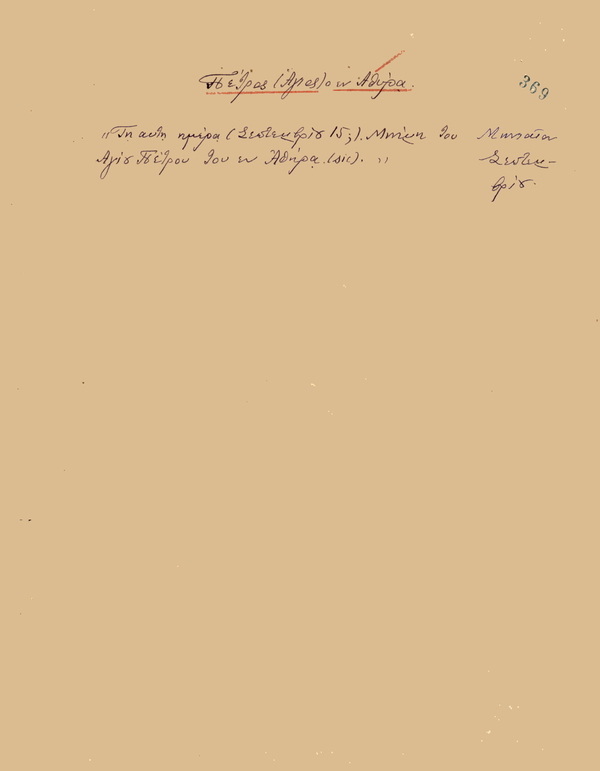 Πέτρος (Άγιος) ο εν Αθύρα.
369
"Τη αυτή ημέρα (Σεπτεμβρίου 15;). Μνήμη του
Αγίου Πέτρου του εν Αθήρα (sic). "
Μηναίον
Σεπτεμ-
βρίου.